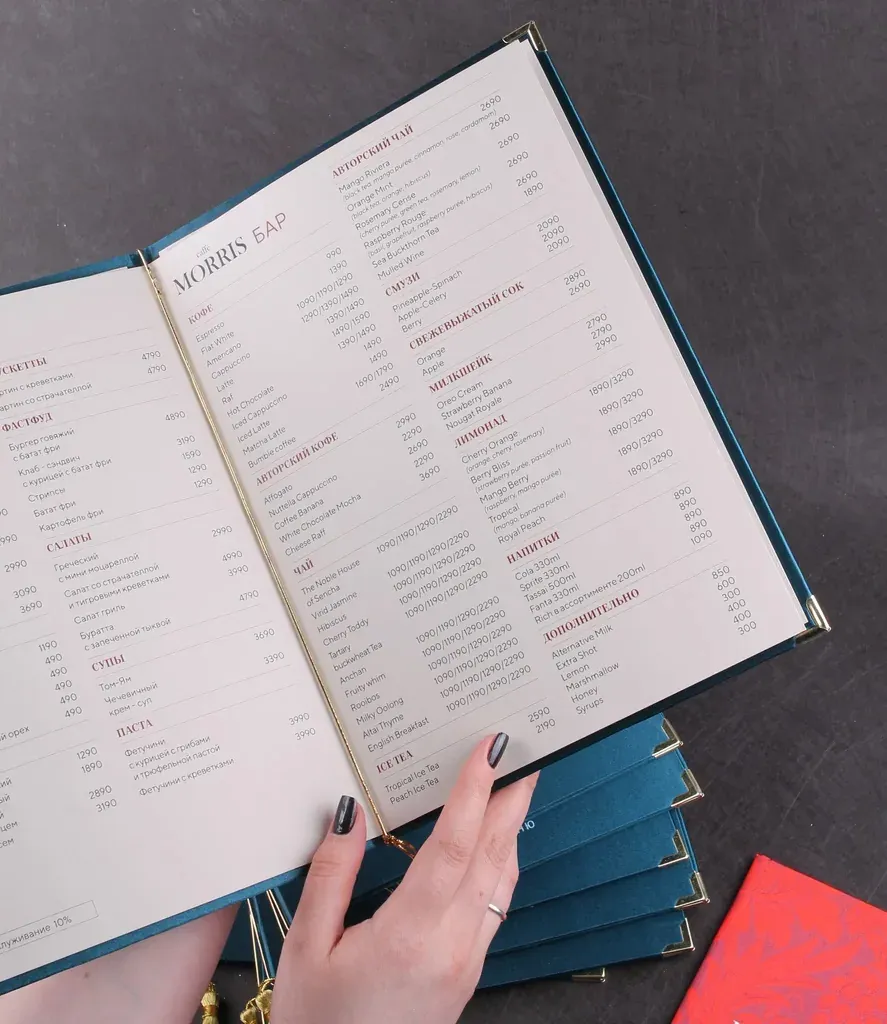 УСКЕТТЫ
артин с креветками 4790
артин со страчателлой 4790
ФАСТФУД
Бургер говяжий 4890
с батат фри
Клаб - сэндвич 3190
с курицей с батат фри
Стрипсы 1590
Батат фри 1290
Картофель фри 1290
САЛАТЫ
Греческий 2990
с мини моцареллой
Салат со страчателлой 4990
и тигровыми креветками
Салат гриль 3990
Буратта 4790
с запеченной тыквой
СУПЫ
Том-Ям 3690
Чечевичный 3390
крем - суп
ПАСТА
Фетучини 3990
с курицей с грибами
и трюфельной пастой
Фетучини с креветками 3990
990
2990
3090
3690
1190
490
490
490
490
490
ый орех
1290
1890
2890
3190
луживание 10%
caffe
MORRIS БАР
КОФЕ
Espresso
Flat White
Americano
Cappuccino
Latte
Raf
Hot Chocolate
Iced Cappuccino
Iced Latte
Matcha Latte
Bumble coffee
990
1390
1090/1190/1290
1290/1390/1490
1390/1490
1490/1590
1390/1490
1490
1690/1790
2490
АВТОРСКИЙ КОФЕ
Affogato 2990
Nuttella Cappuccino 2290
Coffee Banana 2690
White Chocolate Mocha 2290
Cheese Raff 3690
ЧАЙ
The Noble House
of Sencha
Vivid Jasmine
Hibiscus
Cherry Toddy
Tartary
buckwheat Tea
Anchan
Fruity whim
Rooibos
Milky Oolong
Altai Thyme
English Breakfast
1090/1190/1290/2290
1090/1190/1290/2290
1090/1190/1290/2290
1090/1190/1290/2290
1090/1190/1290/2290
1090/1190/1290/2290
1090/1190/1290/2290
1090/1190/1290/2290
1090/1190/1290/2290
ICE TEA
Tropical Ice Tea 2590
Peach Ice Tea 2190
АВТОРСКИЙ ЧАЙ
Mango Riviera 2690
(black tea, mango purée, cinnamon, rose, cardamom)
Orange Mint 2690
(black tea, orange, hibiscus)
Rosemary Cerise 2690
(cherry purée, green tea, rosemary, lemon)
Raspberry Rouge 2690
(basil, grapefruit, raspberry purée, hibiscus)
Sea Buckthorn Tea 2690
Mulled Wine 1890
СМУЗИ
Pineapple-Spinach 2090
Apple-Celery 2090
Berry 2090
СВЕЖЕВЫЖАТЫЙ СОК
Orange 2890
Apple 2690
МИЛКШЕЙК
Oreo Cream 2790
Strawberry Banana 2790
Nougat Royale 2990
ЛИМОНАД
Cherry Orange 1890/3290
(orange, cherry, rosemary)
Berry Bliss 1890/3290
(strawberry purée, passion fruit)
Mango Berry 1890/3290
(raspberry, mango purée)
Tropical 1890/3290
(mango, banana purée)
Royal Peach 1890/3290
НАПИТКИ
Cola 330ml 890
Sprite 330ml 890
Tassai 500ml 890
Fanta 330ml 890
Rich в ассортименте 200ml 1090
ДОПОЛНИТЕЛЬНО
Alternative Milk 850
Extra Shot 600
Lemon 300
Marshmallow 400
Honey 400
Syrups 300